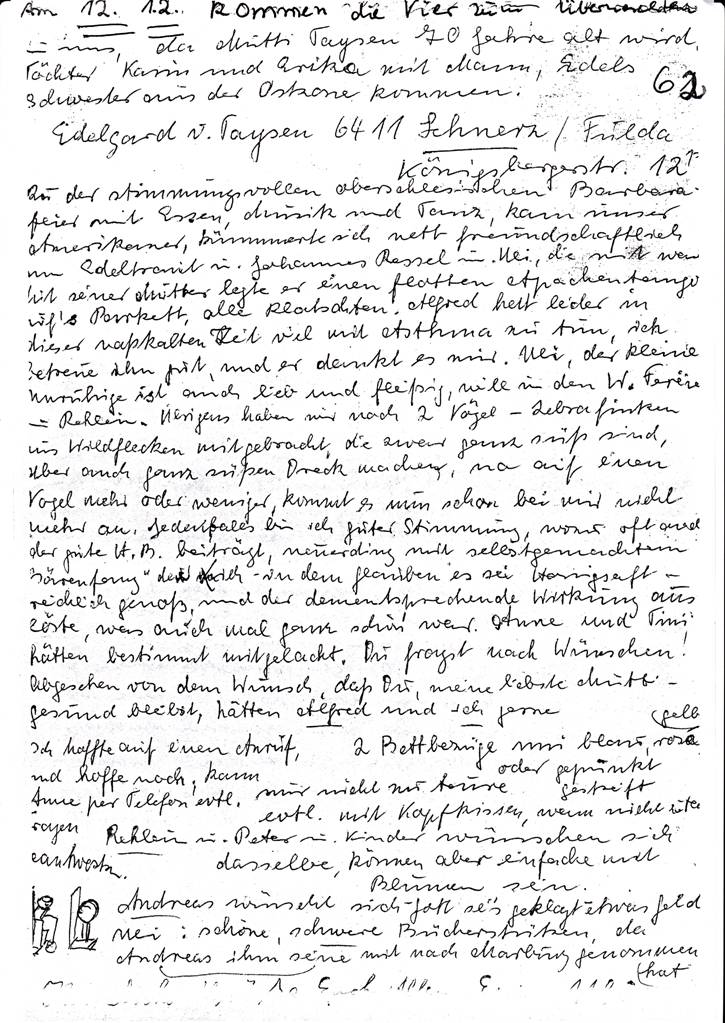 Am 12. 12. kommen die Vier zum
uns, da Mutti Taysen 70 Jahre alt wird,
Töchter Karin und Erika mit Mann, Edels
Schwester aus der Ostzone kommen.
62
Edelgard v. Taysen 6411 / Fulda
Königsbergerstr. 12
Zu der stimmungsvollen oberschlesischen Barbara-
feier mit Essen, Musik und Tanz, kam unser
Amerikaner, kümmerte sich nett freundschaftlich
um Edeltraut u. Johannes Ressel u. Uli, die mit waren
mit seiner Mutter legte er einen flotten Apachentango
auf's Parkett, alle klatschten. Alfred hat leider in
dieser naßkalten Zeit viel mit Asthma zu tun, ich
betreue ihn gut, und er dankt es mir. Uli, der kleine
unruhige ist auch lieb und fleißig, will in den W. Ferien
Rehlein. Übrigens haben wir noch 2 Vögel - Zebrafinken
aus Wildflecken mitgebracht, die zwar ganz süß sind,
aber auch ganz süßen Dreck machen, na auf einen
Vogel mehr oder weniger, kommt es nun schon bei mir nicht
mehr an. Jedenfalls bin ich guter Stimmung, wozu oft auch
der gute H. B. beiträgt, neuerding mit selbstgemachtem
Bärenfang" den ich - in dem glauben es sei Honigsaft -
reichlich genoß, und der dementsprechende Wirkung aus
löste, was auch mal ganz schön war. Anne und Tini
hätten bestimmt mitgelacht. Du fragst nach Wünschen!
Abgesehen von dem Wunsch, daß Du, meine liebste Mutti -
gesund bleibst, hätten Alfred und ich gerne
2 Bettbezüge uni blau, rosa (gelb
oder gepunkt
nur nicht zu teure gestreift
evtl. mit Kopfkissen, wenn nicht
Ich hoffe auf einen Anruf,
und hoffe noch, kann
Anne per Telefon evtl.
fragen
beantworten.
Rehlein u. Peter u. Kinder wünschen sich
dasselbe, können aber einfache mit
Blumen sein.
Andreas wünscht sich Gott sei's geklagt etwas Geld
Uli : schöne, schwere Bücherstützen, da
Andreas ihm seine mit nach Marburg genommen
(hat